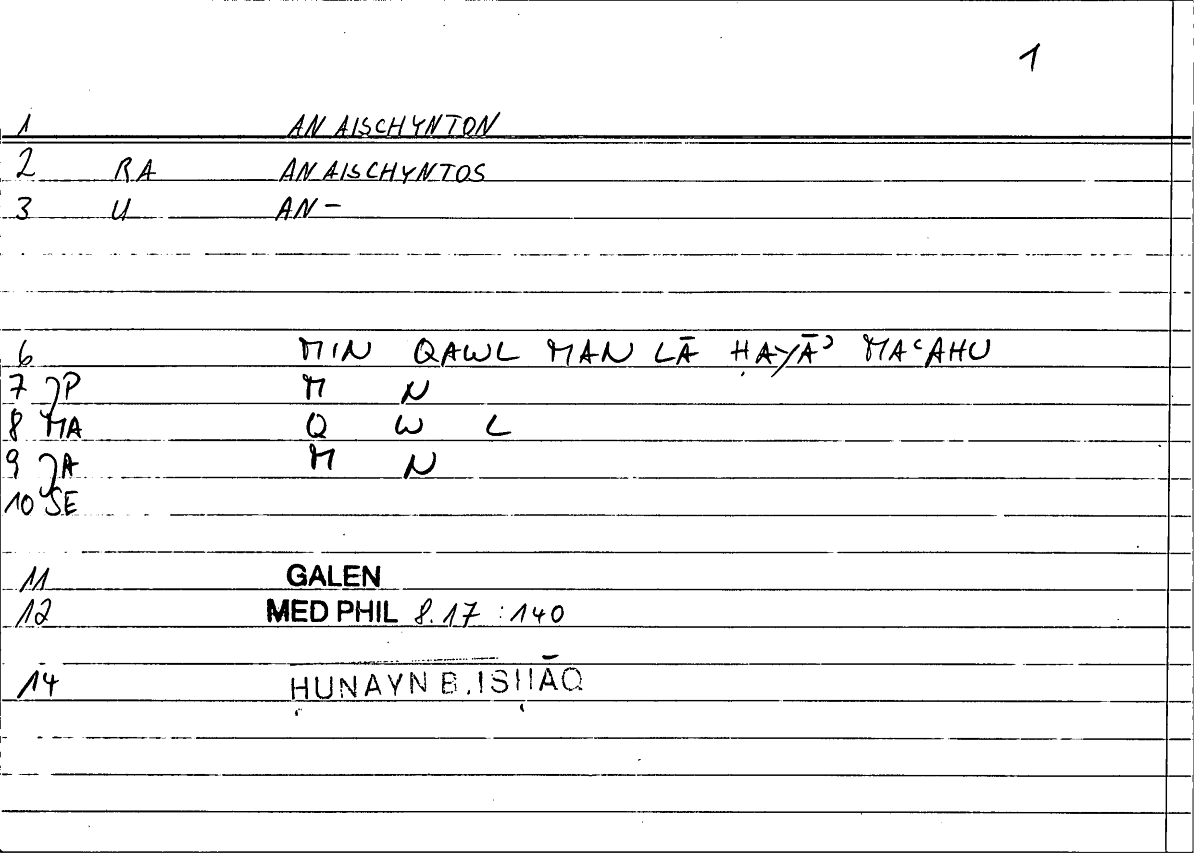 1
1 AN AISCHYNTON
2 RA ANAISCHYNTOS
3 U AN-
6 MIN QAWL MAN LĀ ḤAYĀʾ MAʿAHU
7 JP M N
8 MA Q W L
9 JA M N
10 SE
11 GALEN
12 MED PHIL 8.17 :140
14 ḤUNAYN B. ISḤĀQ